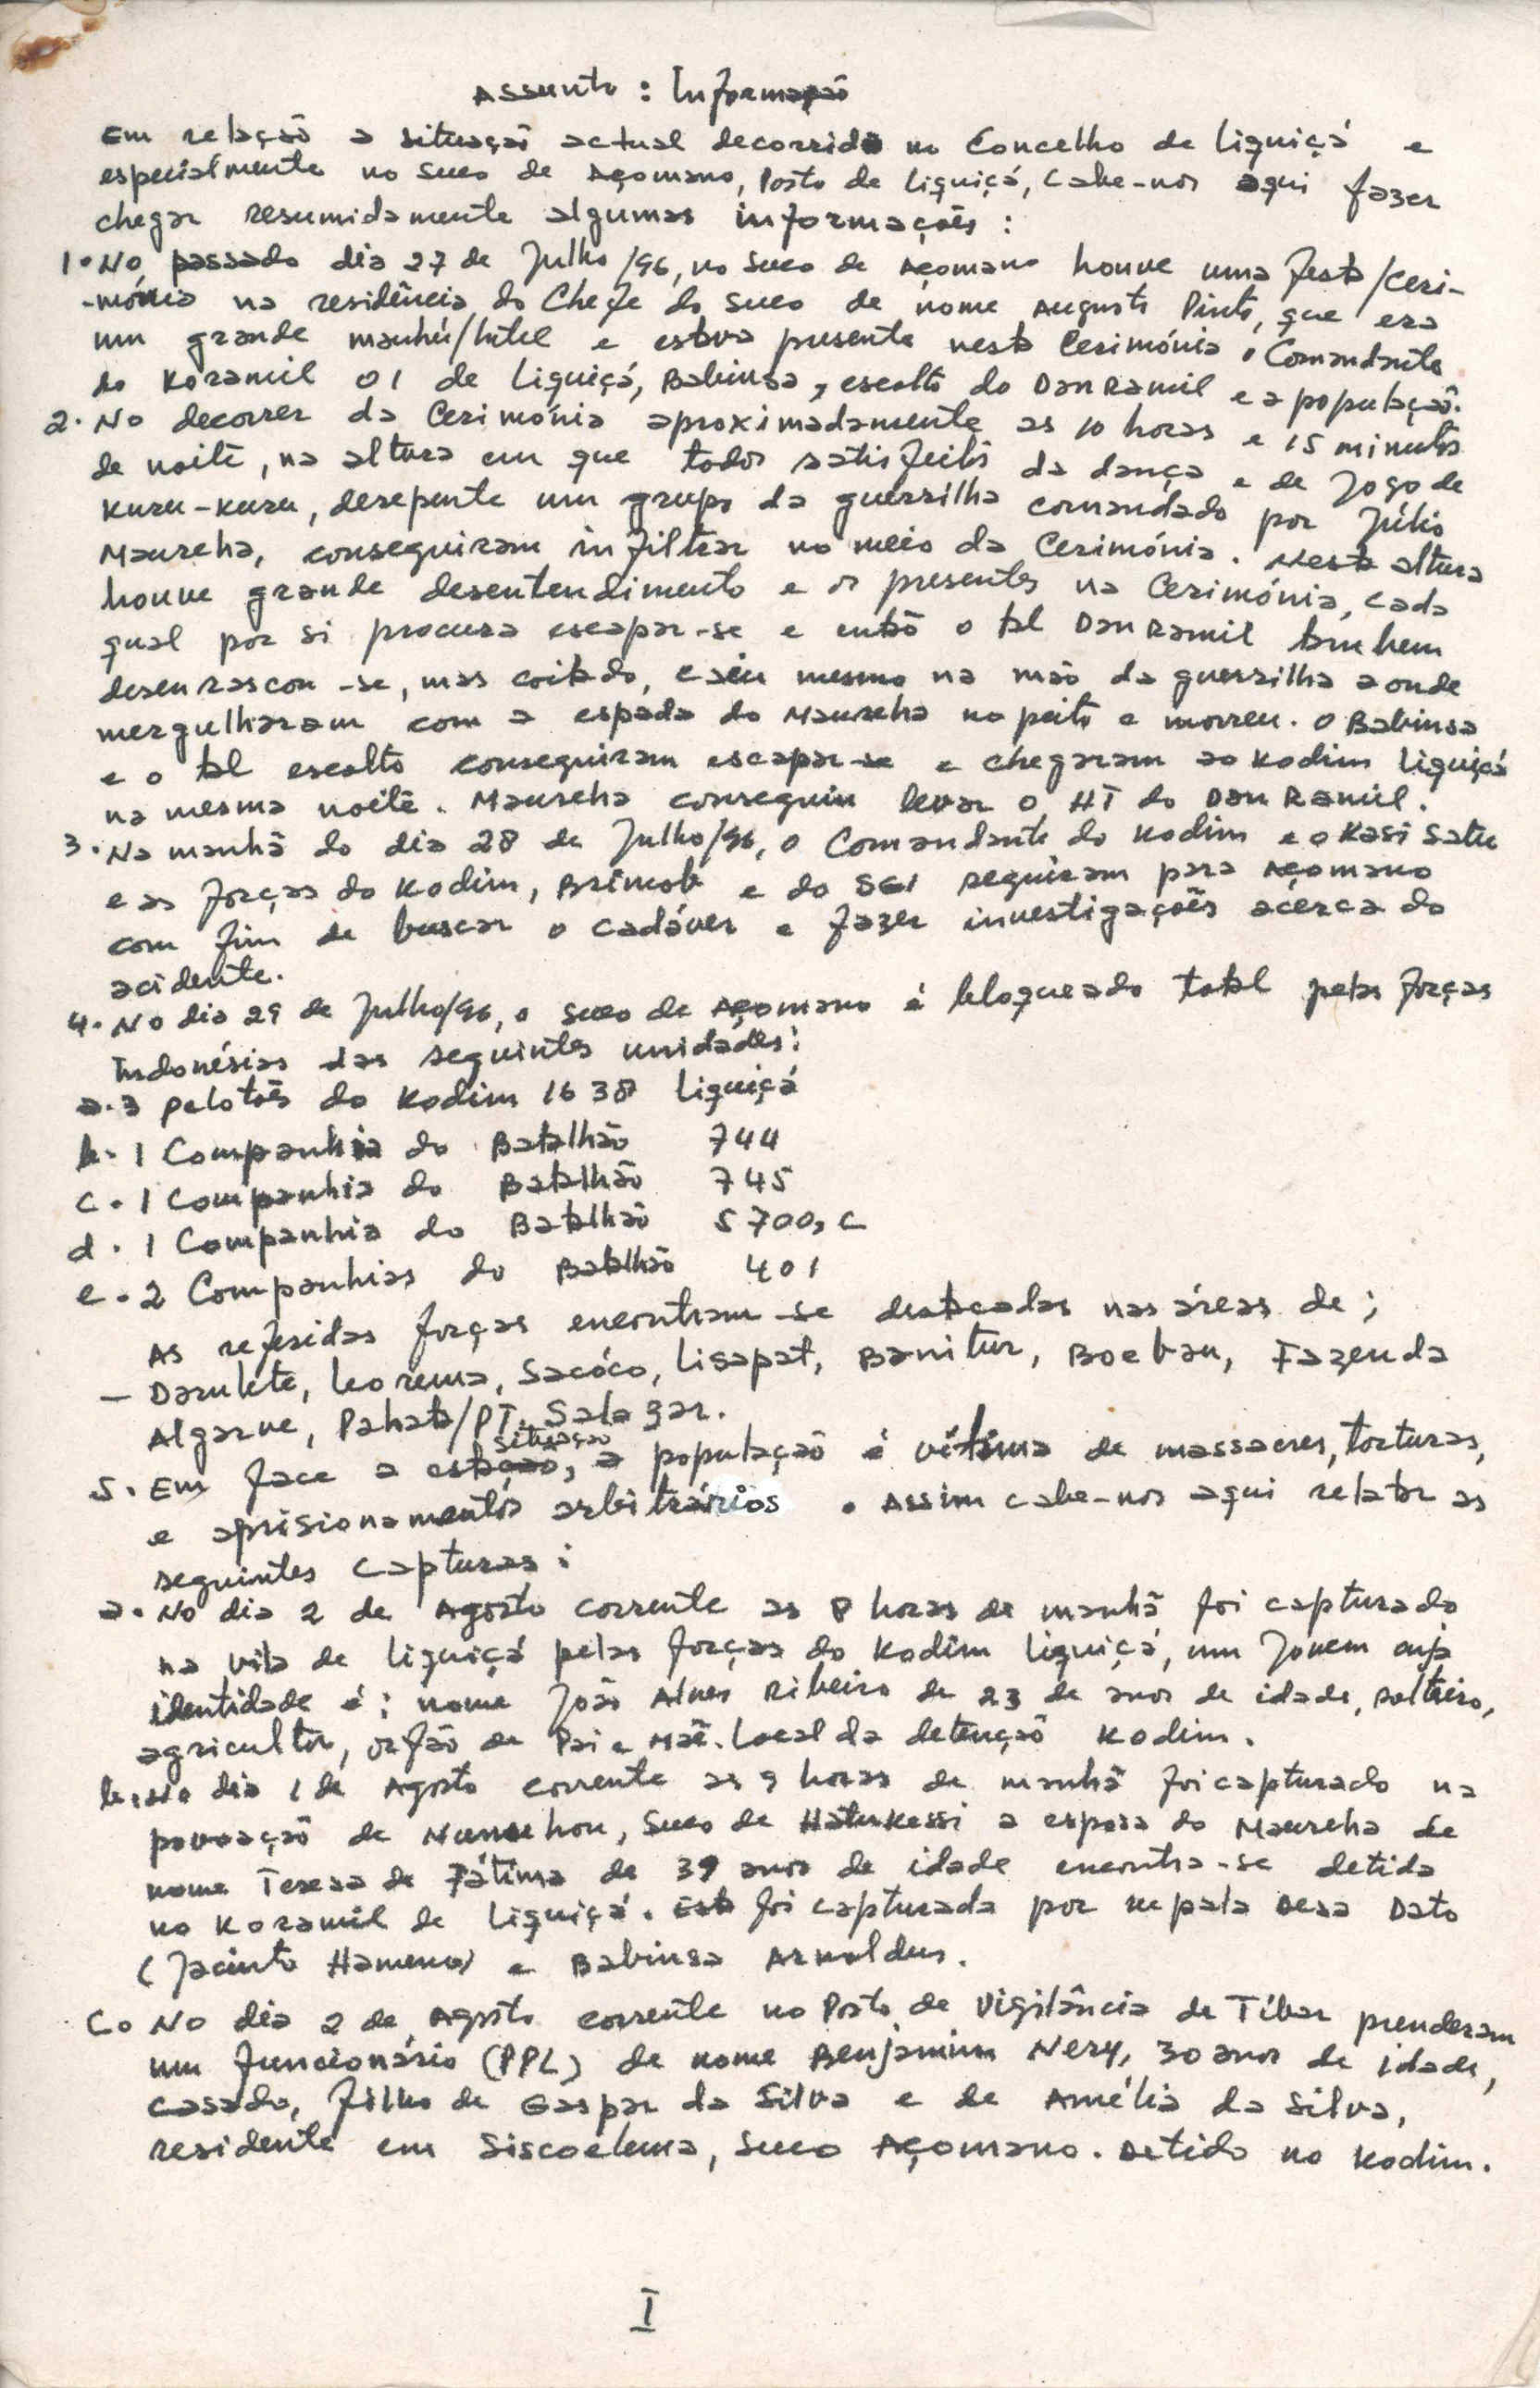 Assunto : Informação
Em relação a situaçaõ actual decorrida no Concelho de Liquiçá e
especialmente no Suco de Açomano, Posto de Liquiçá, cabe-nos aqui fazer
chegar resumidamente algumas informações :
1. No passado dia 27 de Julho/96, no Suco de Açomano houve uma festa/ceri-
-mónia na residência do Chefe do Suco de nome Augusto Pinto, que era
um grande mauhú/Intel e estava presente nesta Cerimónia o Comandante
do Koramil 01 de Liquiçá, Babinsa, escolto do DanRamil e a populaçaõ.
2. No decorrer da Cerimónia aproximadamente as 10 horas e 15 minutos
de noite, na altura em que todos satisfeitos da dança e de Jogo de
Kuru-kuru, derepente um grupo da guerrilha comandado por Júlio
Maureha, conseguiram infiltrar no meio da Cerimónia. Nesta altura
houve grande desentendimento e os presentes na Cerimónia, cada
qual por si procura escapar-se e então o tal DanRamil tambem
desenrascou-se, mas coitado, caeiu mesmo na mão da guerrilha aonde
mergulharam com a espada do Maureha no peito e morreu. O Babinsa
e o tal escolto conseguiram escapar-se e chegaram ao Kodim Liquiçá
na mesma noite. Maureha conseguiu levar o HT do DanRamil.
3. Na manhã do dia 28 de Julho/96, o Comandante do Kodim e o Kasi Satu
e as forças do Kodim, Brimob e do SGI seguiram para Açomano
com fim de buscar o cadáver e fazer investigações acerca do
acidente.
4. No dia 29 de Julho/96, o Suco de Açomano é bloqueado total pelas forças
Indonésias das seguintes unidades:
a. 3 pelotões do Kodim 1638 Liquiçá
b. 1 Companhia do Batalhão 744
c. 1 Companhia do Batalhão 745
d. 1 Companhia do Batalhão 5 700, C
e. 2 Companhias do Batalhão 401
As referidas forças encontram-se destacadas nas áreas de ;
- Darulete, Leorema, Sacóco, Lisapat, Banitur, Boebau, Fazenda
Algarve, Pahata/PT. Salagar.
situaçao
5. Em face a estaçao, a populaçaõ é vítima de massacres, torturas,
e aprisionamentos arbitrários . Assim cabe-nos aqui relatar as
seguintes capturas :
a. No dia 2 de Agosto corrente as 8 horas de manhã foi capturado
na vila de Liquiçá pelas forças do Kodim Liquiçá, um Jovem cuja
identidade é : nome João Alves Ribeiro de 23 de anos de idade, solteiro,
agricultor, orfão de Pai e Mãe. Local da detençaõ Kodim.
b. No dia 1 de Agosto corrente as 9 horas de manhã foi capturado na
povoaçaõ de Nunuhou, Suco de Hatukessi a esposa do Maureha de
nome Teresa de Fátima de 39 anos de idade encontra-se detida
no Koramil de Liquiçá. Esta foi capturada por kepala Desa Dato
(Jacinto Hamenos) e Babinsa Arnoldus.
C. No dia 2 de Agosto corrente no Posto de Vigilância de Tíbar prenderam
um funcionário (PPL) de nome Benjamim Nery, 30 anos de idade,
casado, filho de Gaspar da Silva e de Amélia da Silva,
residente em Siscoelema, Suco Açomano. Detido no Kodim.
I